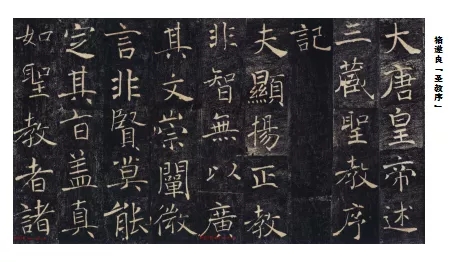 褚遂良「圣教序」
大唐皇帝述
三藏聖教序
記
夫顯揚正教
非智無以廣
其文崇闡微
言非賢莫能
定其旨蓋真
如聖教者諸